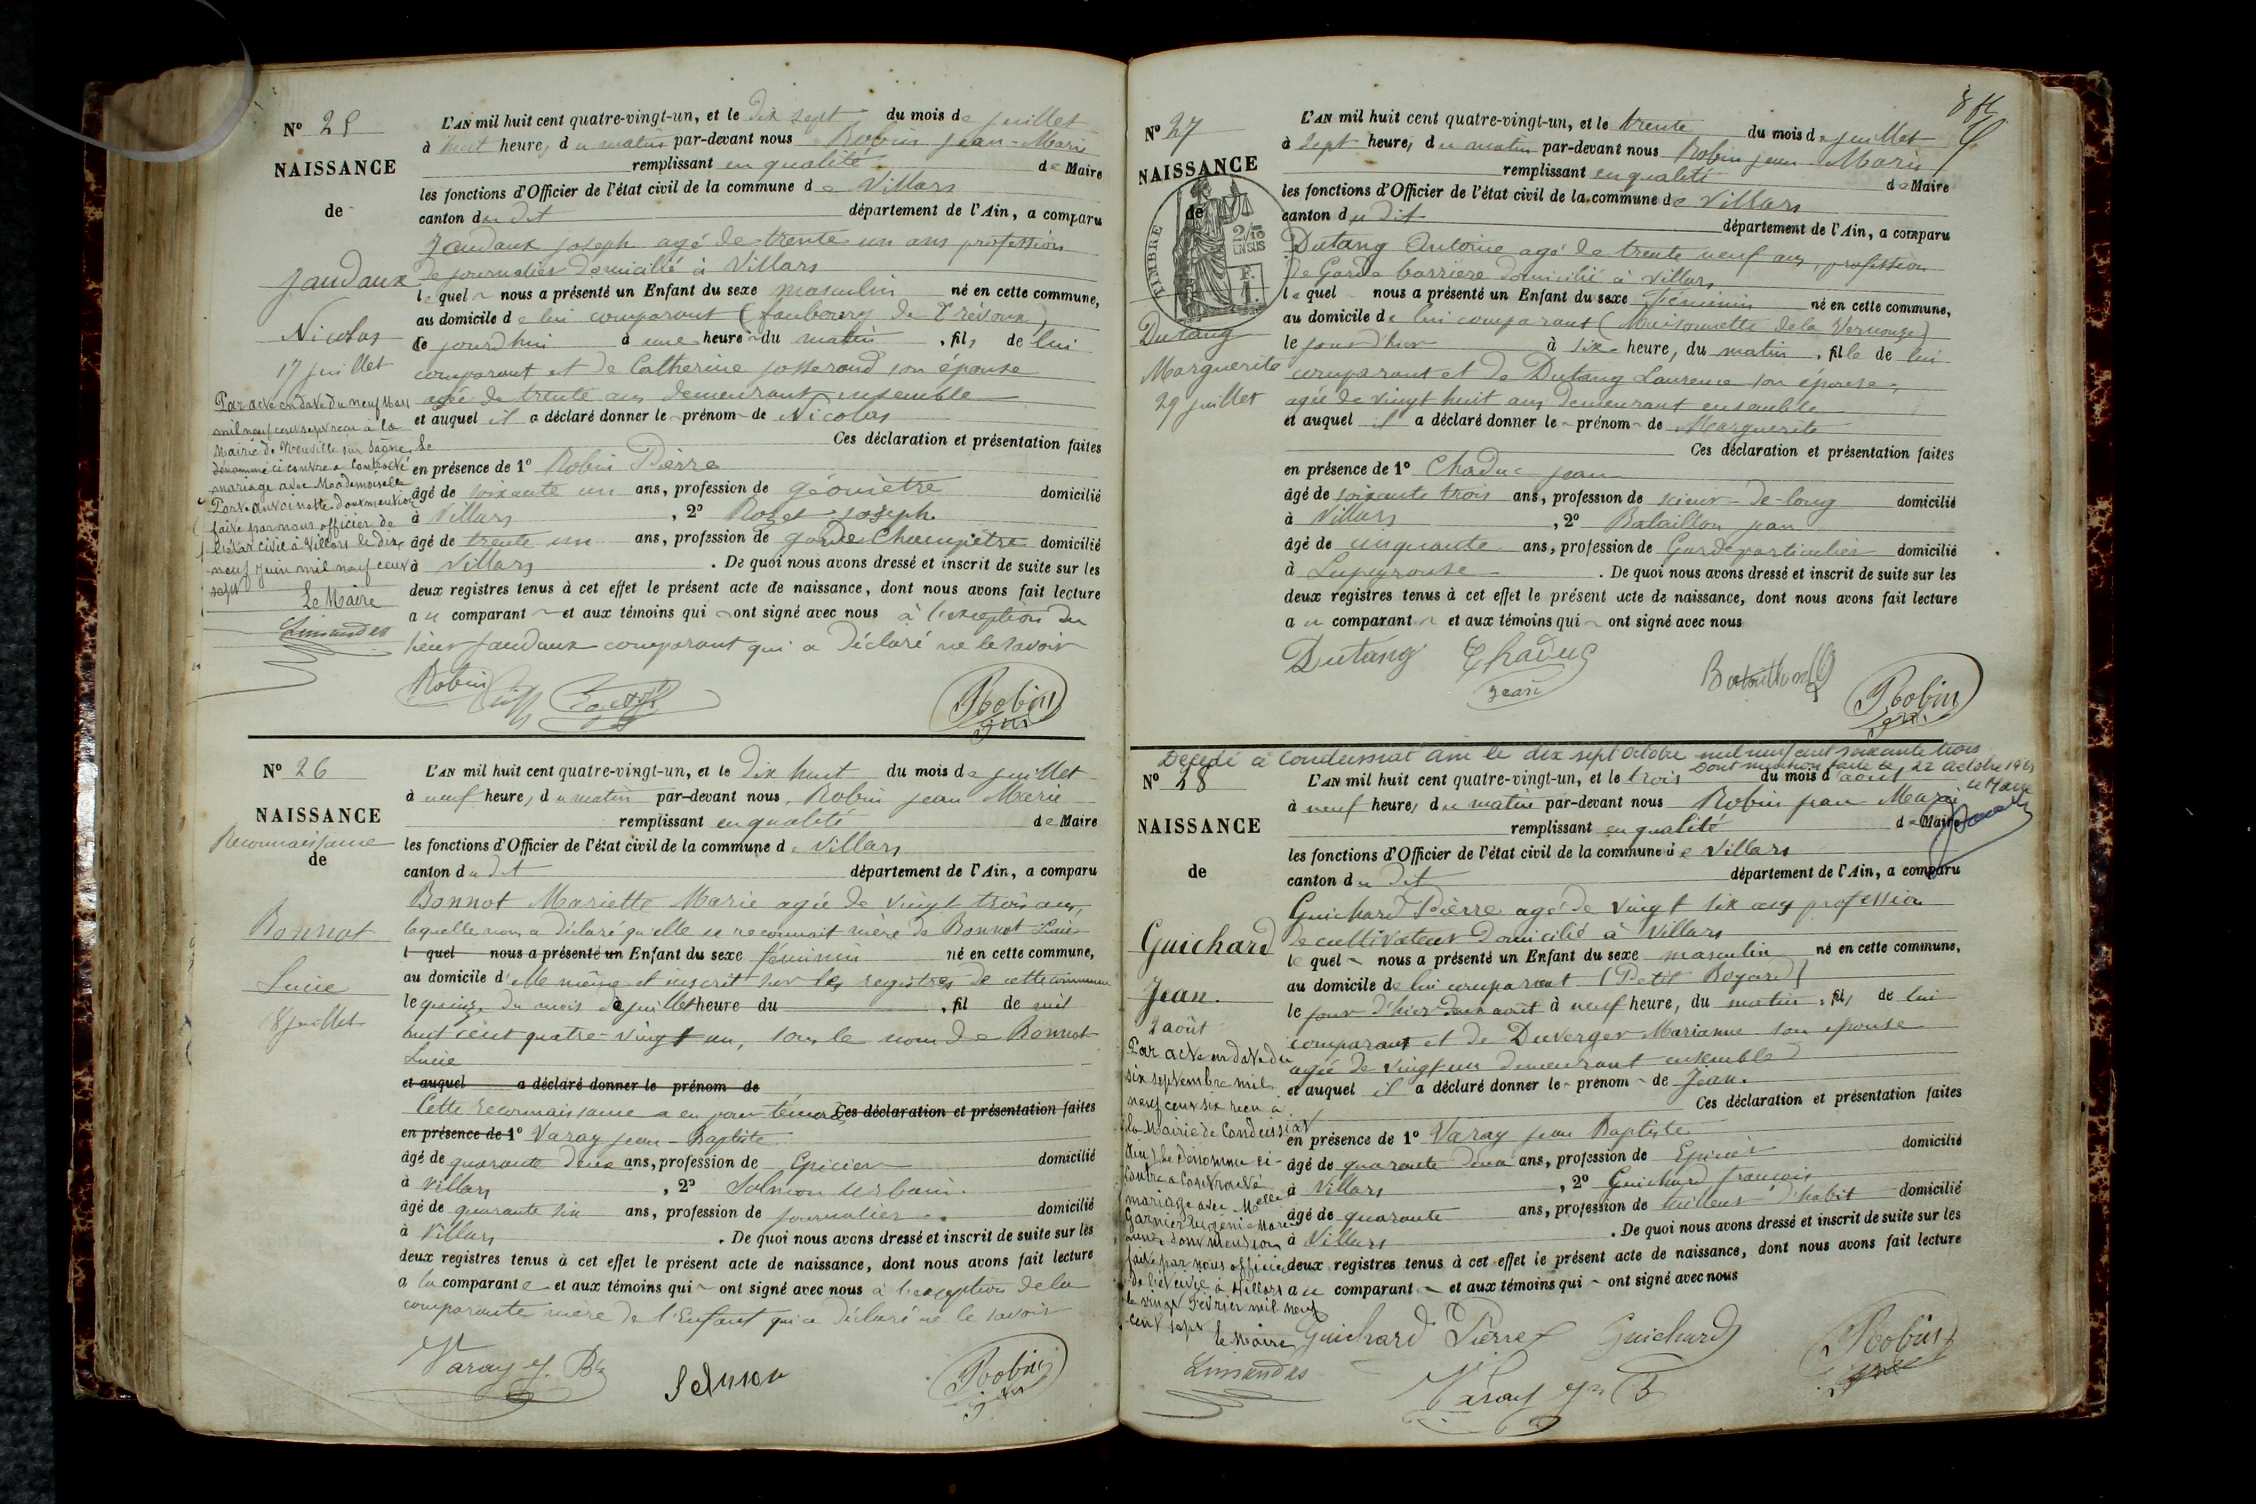 N° 25
NAISSANCE
de
Jandaux
Nicolas
17 juillet
Par acte en date du neuf Mars
mil neuf cent sept reçu à la
Mairie de Neuville sur Saône, le
dénommé ci contre a contracté
mariage avec Mademoiselle
Antoinette dont mention
faite par nous officier de
l'état civil à Villars le dix
neuf Juin mil neuf cent
sept
Le Maire
Limandas
L'AN mil huit cent quatre-vingt-un, et le dix sept du mois de juillet
à huit heures, du matin par-devant nous Robin Jean-Marie
remplissant en qualité de Maire
les fonctions d'Officier de l'état civil de la commune de Villars
canton du dit département de l'Ain, a comparu
Jandaux Joseph agé de trente un ans profession
de journalier domicilié à Villars
lequel nous a présenté un Enfant du sexe masculin né en cette commune,
au domicile de lui comparant (faubourg de Trévoux)
ce jourd'hui à une heure du matin, fils de lui
comparant et de Catherine Josserand son épouse
agée de trente ans demeurant ensemble
et auquel il a déclaré donner le prénom de Nicolas
Ces déclaration et présentation faites
en présence de 1° Robin Pierre
âgé de soixante un ans, profession de géomètre domicilié
à Villars, 2° Rozet Joseph
âgé de trente un ans, profession de garde Champêtre domicilié
à Villars. De quoi nous avons dressé et inscrit de suite sur les
deux registres tenus à cet effet le présent acte de naissance, dont nous avons fait lecture
au comparant et aux témoins qui ont signé avec nous à l'exception du
sieur Jandaux comparant qui a déclaré ne le savoir
Robin Robin
N° 26
NAISSANCE
Reconnaissance
de
Bonnot
Lucie
18 juillet
L'AN mil huit cent quatre-vingt-un, et le dix huit du mois de juillet
à neuf heures, du matin par-devant nous, Robin Jean Marie
remplissant en qualité de Maire
les fonctions d'Officier de l'état civil de la commune de Villars
canton du dit département de l'Ain, a comparu
Bonnot Mariette Marie agée de vingt trois ans,
laquelle nous a déclaré qu'elle se reconnait mère de Bonnot Lucie
l quel nous a présenté un Enfant du sexe féminin né en cette commune,
au domicile d'elle même et inscrit sur les registres de cette commune
le quinze du mois de juillet heure du, fil de mil
huit cent quatre vingt un, sous le nom de Bonnot
Lucie
et auquel a déclaré donner le prénom de
Cette reconnaissance a eu pour témoins Ces déclaration et présentation faites
en présence de 1° Varay Jean-Baptiste
âgé de quarante deux ans, profession de Epicier domicilié
à Villars, 2° Urbain
âgé de quarante six ans, profession de journalier domicilié
à Villars. De quoi nous avons dressé et inscrit de suite sur les
deux registres tenus à cet effet le présent acte de naissance, dont nous avons fait lecture
a la comparante et aux témoins qui ont signé avec nous à l'exception de la
comparante mère de l'Enfant qui a déclaré ne le savoir
Varay J. Bte Robin
N° 27
NAISSANCE
de
TIMBRE
2/10
EN SUS
Dutang
Marguerite
29 juillet
L'AN mil huit cent quatre-vingt-un, et le trente du mois de juillet
à sept heures, du matin par-devant nous Robin Jean Marie
remplissant en qualité de Maire
les fonctions d'Officier de l'état civil de la commune de Villars
canton du dit département de l'Ain, a comparu
Dutang Antoine agé de trente neuf ans, profession
de Garde barrière domicilié à Villars
lequel nous a présenté un Enfant du sexe féminin né en cette commune,
au domicile de lui comparant (Maisonnette de la Vernouze)
le jour d'hier à six heure, du matin, fille de lui
comparant et de Dutang Laurence son épouse,
agée de vingt huit ans demeurant ensemble
et auquel il a déclaré donner le prénom de Marguerite
Ces déclaration et présentation faites
en présence de 1° Chaduc Jean
âgé de soixante trois ans, profession de scieur-de-long domicilié
à Villars, 2° Bataillon Jean
âgé de cinquante ans, profession de Garde particulier domicilié
à Lapeyrouse. De quoi nous avons dressé et inscrit de suite sur les
deux registres tenus à cet effet le présent acte de naissance, dont nous avons fait lecture
au comparant et aux témoins qui ont signé avec nous
Dutang Chaduc
Jean Robin
Décédé à Condeissiat Ain le dix sept octobre mil neuf cent soixante trois
Dont mention faite le 22 octobre 1963
le Maire
N° 28
NAISSANCE
de
Guichard
Jean.
2 août
Par acte en date du
six septembre mil
neuf cent six reçu à
la Mairie de Condeissiat
(Ain) le dénommé ci-
contre a contracté
mariage avec Melle
Garnier Eugénie Marie
dont mention
faite par nous officier
de l'état civil à Villars
le vingt Février mil neuf
cent sept
Le Maire
Limandas
L'AN mil huit cent quatre-vingt-un, et le trois du mois d'août
à neuf heures, du matin par-devant nous Robin Jean Marie
remplissant en qualité de Maire
les fonctions d'Officier de l'état civil de la commune de Villars
canton du dit département de l'Ain, a comparu
Guichard Pierre agé de vingt six ans profession
de cultivateur domicilié à Villars
lequel nous a présenté un Enfant du sexe masculin né en cette commune,
au domicile de lui comparant (Petit Boyard)
le jour d'hier deux août à neuf heure, du matin, fils de lui
comparant et de Duverger Marianne son épouse
agée de vingt un demeurant ensemble
et auquel il a déclaré donner le prénom de Jean.
Ces déclaration et présentation faites
en présence de 1° Varay Jean Baptiste
âgé de quarante deux ans, profession de Epicier domicilié
à Villars, 2° Guichard François
âgé de quarante ans, profession de tailleur d'habit domicilié
à Villars. De quoi nous avons dressé et inscrit de suite sur les
deux registres tenus à cet effet le présent acte de naissance, dont nous avons fait lecture
au comparant et aux témoins qui ont signé avec nous
Guichard Pierre Guichard Robin
Varay